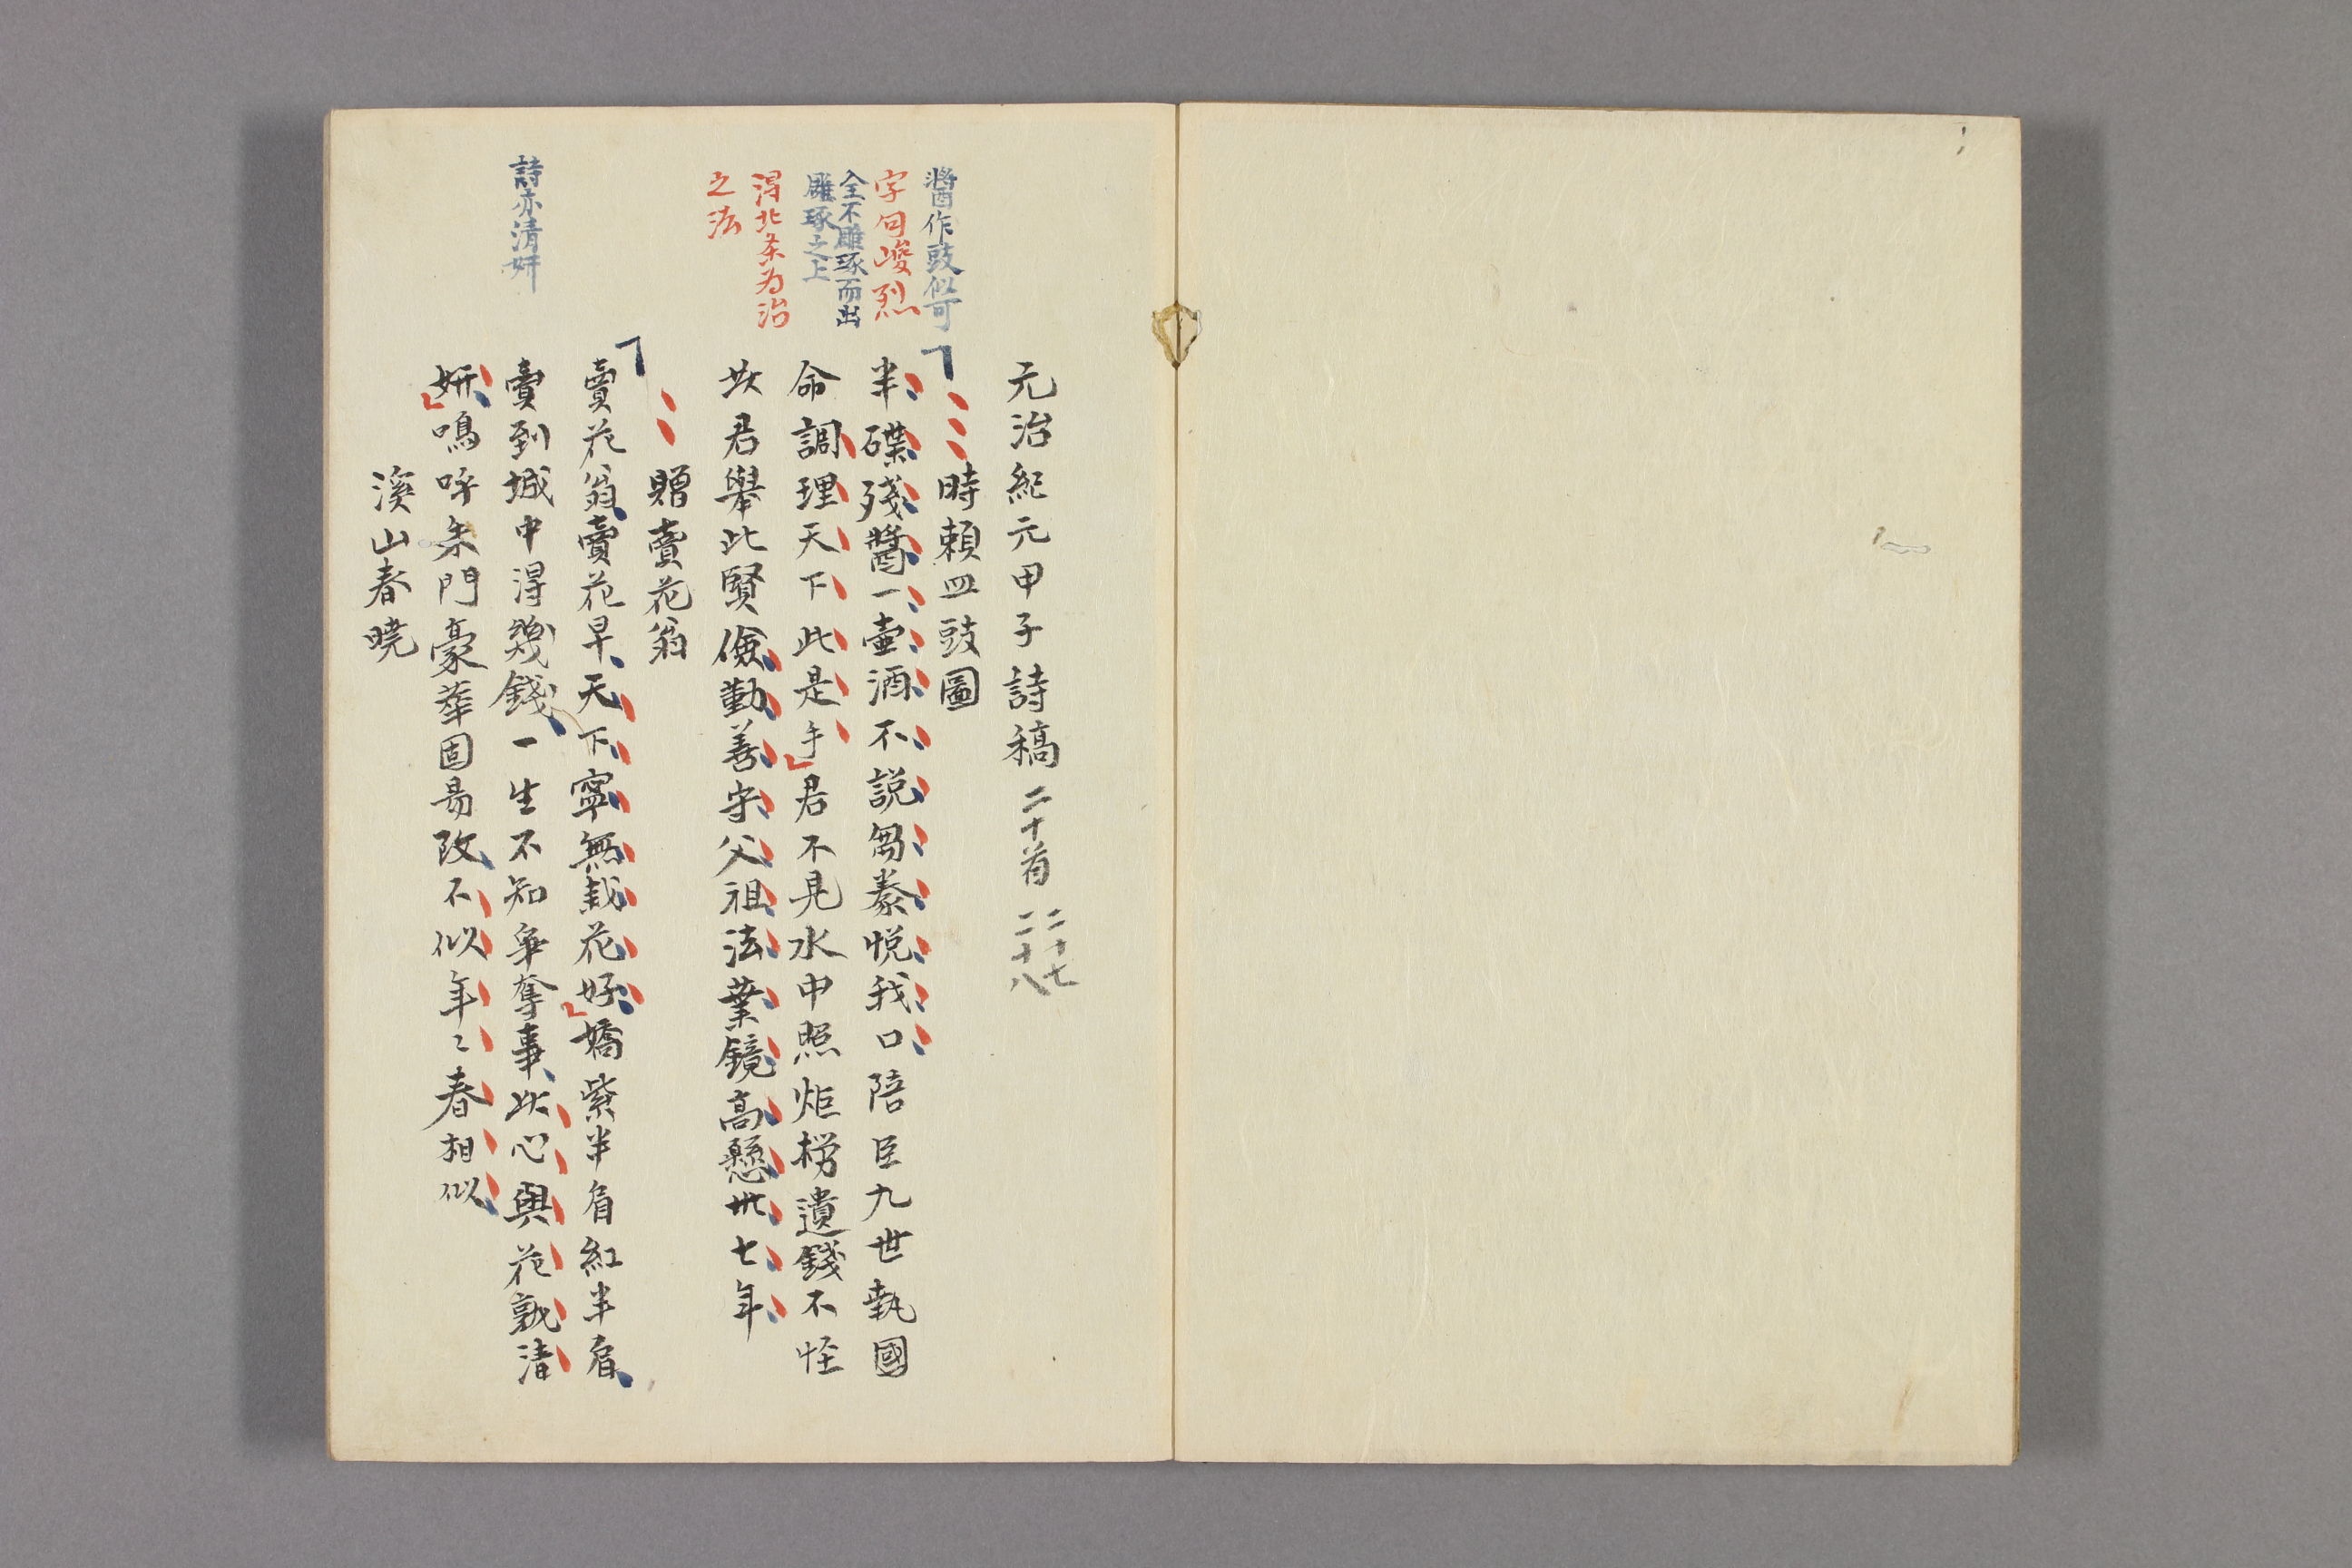 元治紀元甲子詩稿 二十首 二十七
二十八
醬作豉似可
時頼皿豉圖
字句峻烈
半碟殘醬一壷酒不説芻豢悦我口陪臣九世執國
全不雕琢而出
雕琢之上
命調理天下此是手君不見水中照炬撈遺錢不怪
得北条为治
之法
此君舉此賢儉勤善守父祖法業鏡高懸卅七年
贈賣花翁
賣花翁賣花早天下寧無栽花好嬌紫半肩紅半肩
詩亦清妍
賣到城中得幾錢一生不知爭奪事此心與花孰清
妍嗚呼朱門豪華固易改不似年〻春相似
溪山春曉